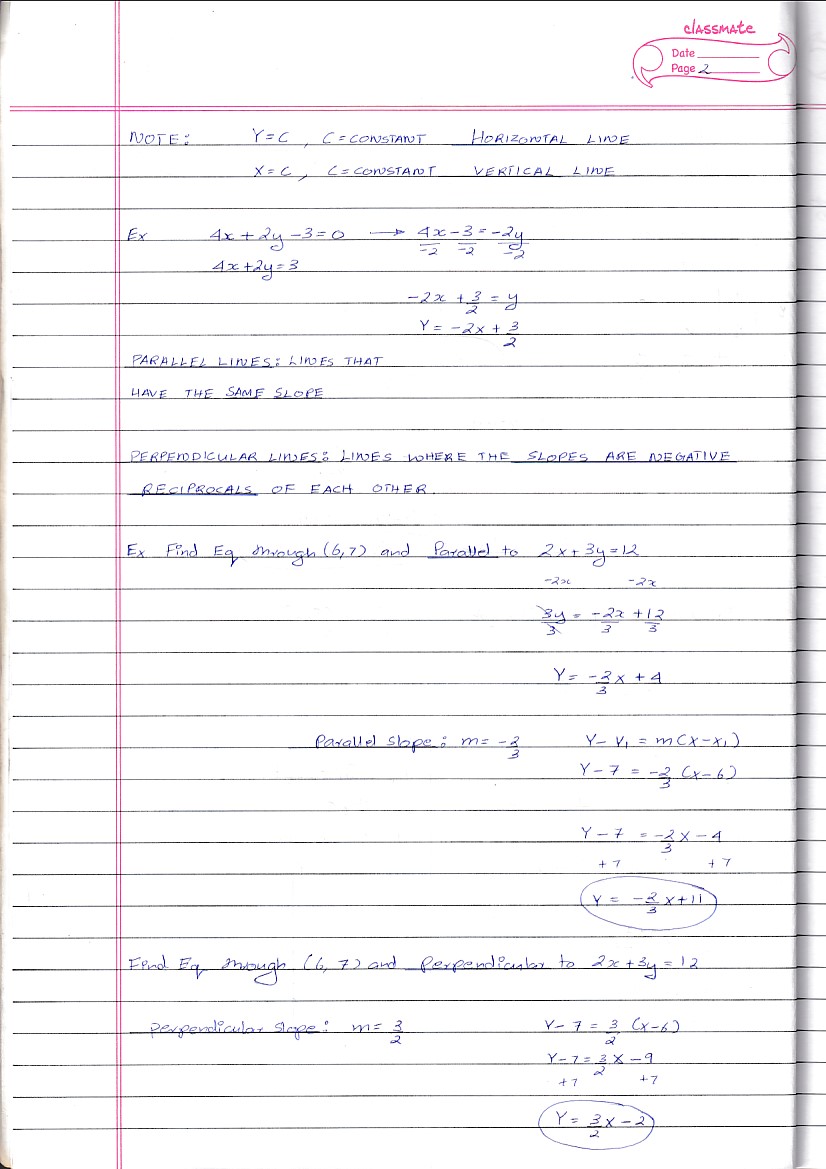 classmate
Date
Page 2
NOTE: Y=C, C=CONSTANT HORIZONTAL LINE
X=C, C=CONSTANT VERTICAL LINE
Ex 4x+2y-3=0 → 4x/-2 -3/-2 = -2y/-2
4x+2y=3
-2x + 3/2 = y
Y = -2x + 3/2
PARALLEL LINES: LINES THAT
HAVE THE SAME SLOPE
PERPENDICULAR LINES: LINES WHERE THE SLOPES ARE NEGATIVE
RECIPROCALS OF EACH OTHER.
Ex Find Eq through (6,7) and Parallel to 2x+3y=12
-2x -2x
3y/3 = -2x/3 + 12/3
Y = -2/3 x + 4
Parallel slope: m = -2/3 Y - Y₁ = m(x-x₁)
Y - 7 = -2/3 (x-6)
Y - 7 = -2/3 x - 4
+7 +7
Y = -2/3 x + 11
Find Eq through (6,7) and Perpendicular to 2x+3y=12
Perpendicular slope: m = 3/2 Y - 7 = 3/2 (x-6)
Y - 7 = 3/2 x - 9
+7 +7
Y = 3/2 x - 2